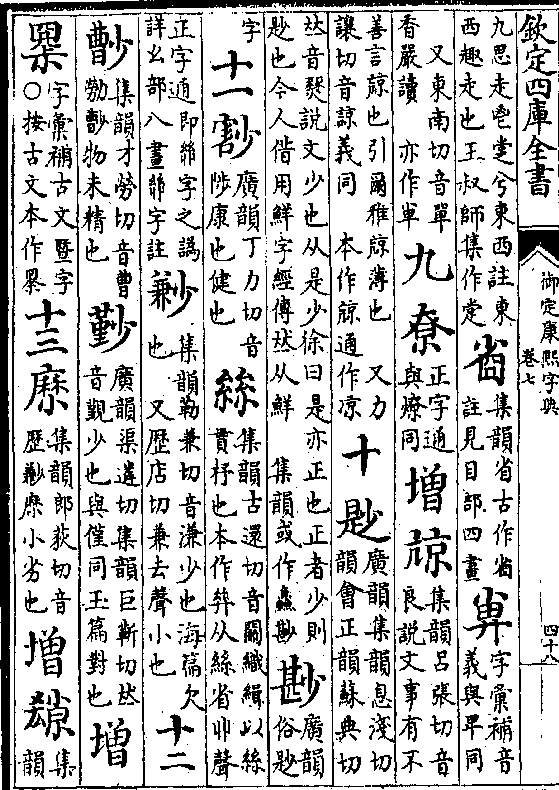 欽定四庫全書
御定康熙字典
卷七
四十八
九思走鬯堂兮東西註東
西趣走也王叔師集作㝑
集韻省古作
註見目部四畫
字彙補音
義與早同
又東南切音單
香嚴讀 亦作单
九
尞
正字通
與燎同
增
集韻呂張切音
良說文事有不
善言也引爾雅薄也 又力
讓切音諒義同 本作通作凉
十
尟
廣韻集韻息淺切
韻會正韻蘇典切
𠀤音說文少也从是少徐曰是亦正也正者少則
尟也今人借用鮮字經傳𠀤从鮮 集韻或作尠
尠
廣韻
俗尟
字
十一
廣韻丁力切音
陟康也健也
集韻古還切音關織緝以絲
貫杼也本作𢇇从絲省丱聲
正字通即𢇇字之譌
詳幺部八畫𢇇字註
集韻勒兼切音濂少也海篇欠
也 又歷店切兼去聲小也
十二
集韻才勞切音曹
物未精也
廣韻渠遴切集韻巨靳切𠀤
音覲少也與僅同玉篇對也
增
字彙補古文暨字
○按古文本作
十三
集韻郎荻切音
歷小劣也
增
集
韻